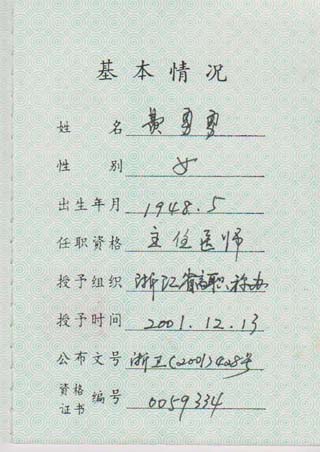 基本情况
姓名 黄
性别 女
出生年月 1948.5
任职资格 主任医师
授予组织 浙江省高职称办
授予时间 2001.12.13
公布文号 浙卫(2001)428号
资格证书编号 0059334